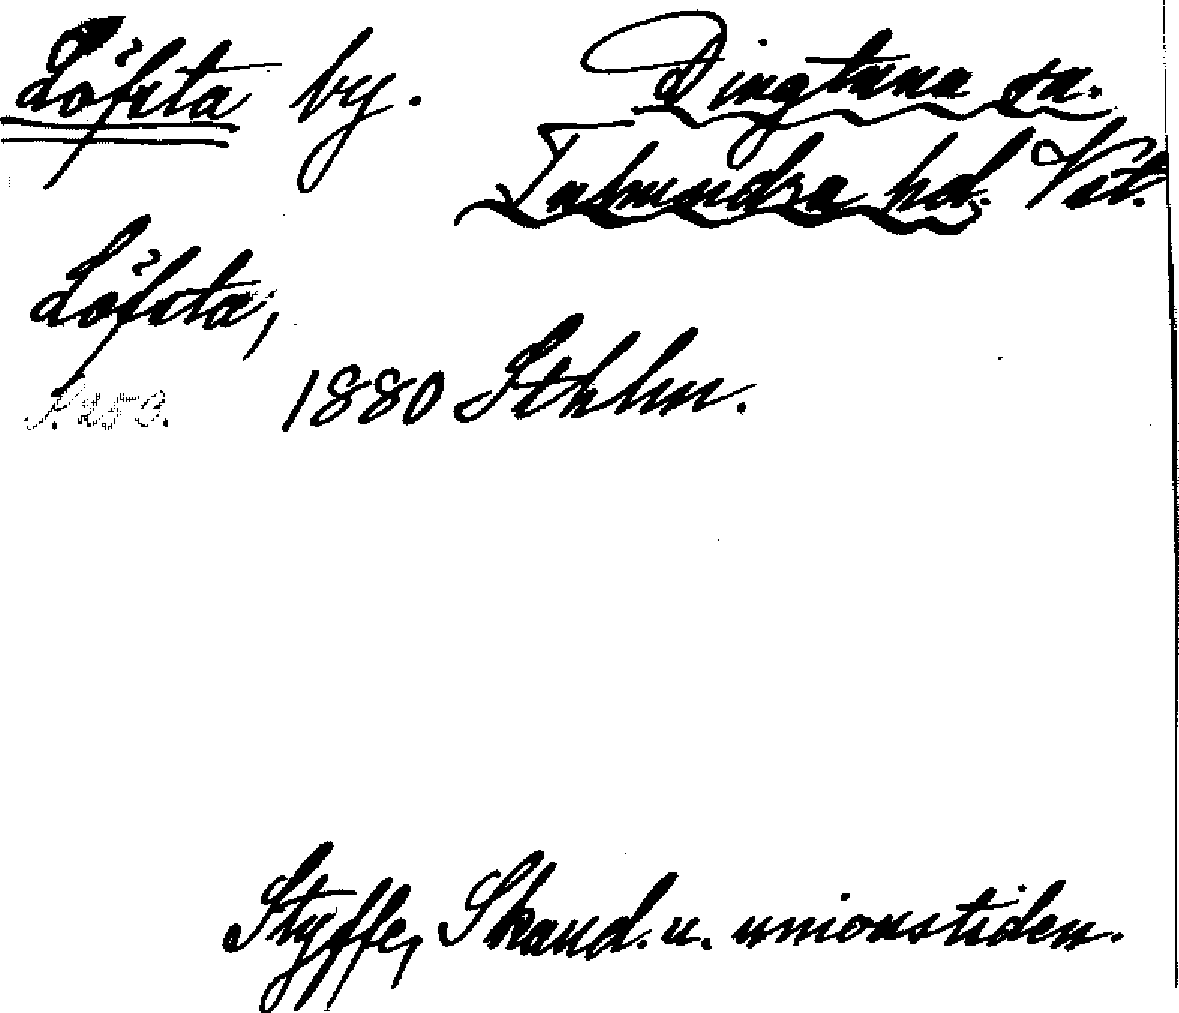 Löfsta by. Dingtuna sn.
Tuhundra hd. Vst.
Löfsta,
S. 250. 1880 Sthlm.
Styffe, Skand. u. unionstiden.